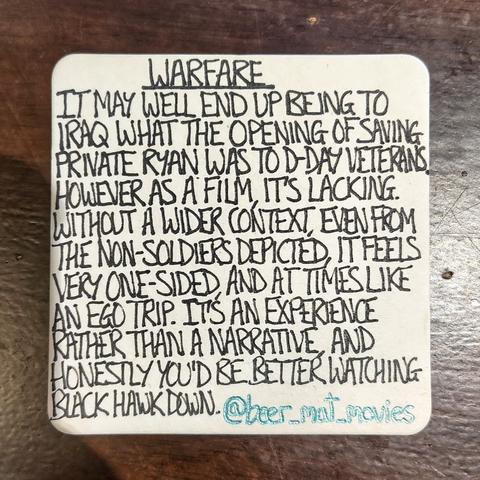 WARFARE
IT MAY WELL END UP BEING TO
IRAQ WHAT THE OPENING OF SAVING
PRIVATE RYAN WAS TO D-DAY VETERANS.
HOWEVER AS A FILM, IT'S LACKING.
WITHOUT A WIDER CONTEXT, EVEN FROM
THE NON-SOLDIERS DEPICTED, IT FEELS
VERY ONE-SIDED, AND AT TIMES LIKE
AN EGO TRIP. IT'S AN EXPERIENCE
RATHER THAN A NARRATIVE, AND
HONESTLY YOU'D BE BETTER WATCHING
BLACK HAWK DOWN. @beer_mat_movies